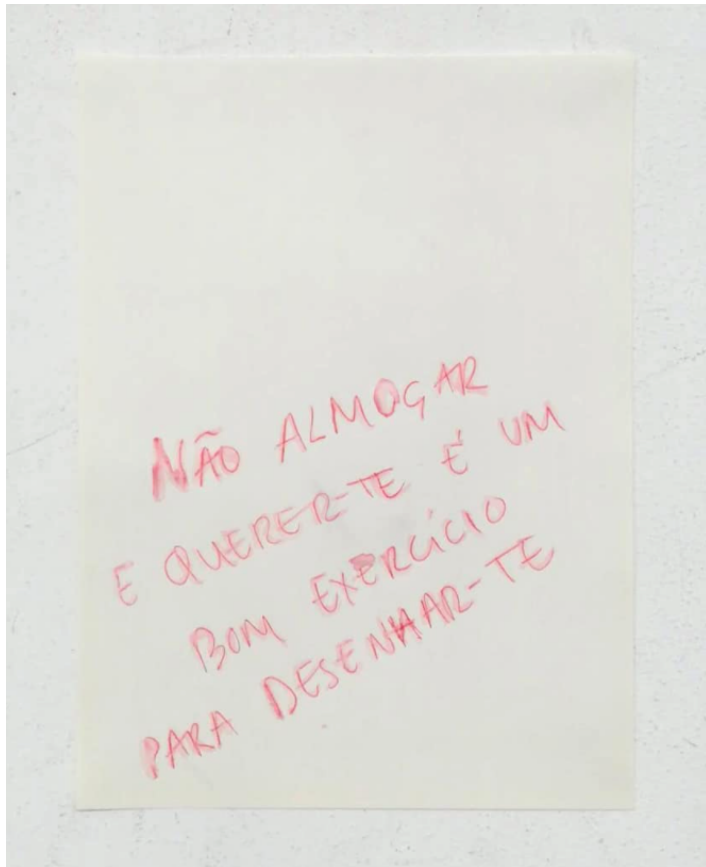 NÃO ALMOÇAR
E QUERER-TE É UM
BOM EXERCÍCIO
PARA DESENHAR-TE